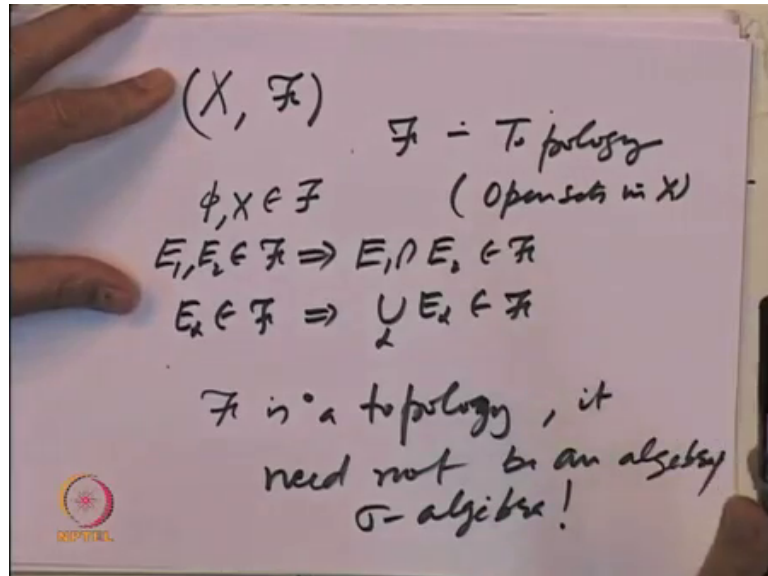 (X, ℱ)
ℱ ≐ Topology
ϕ, X ∈ ℱ
(Open sets in X)
E₁, E₂ ∈ ℱ ⇒ E₁ ∩ E₂ ∈ ℱ
E_α ∈ ℱ ⇒ ⋃_α E_α ∈ ℱ
ℱ is a topology, it
need not be an algebra/
σ-algebra!
NPTEL